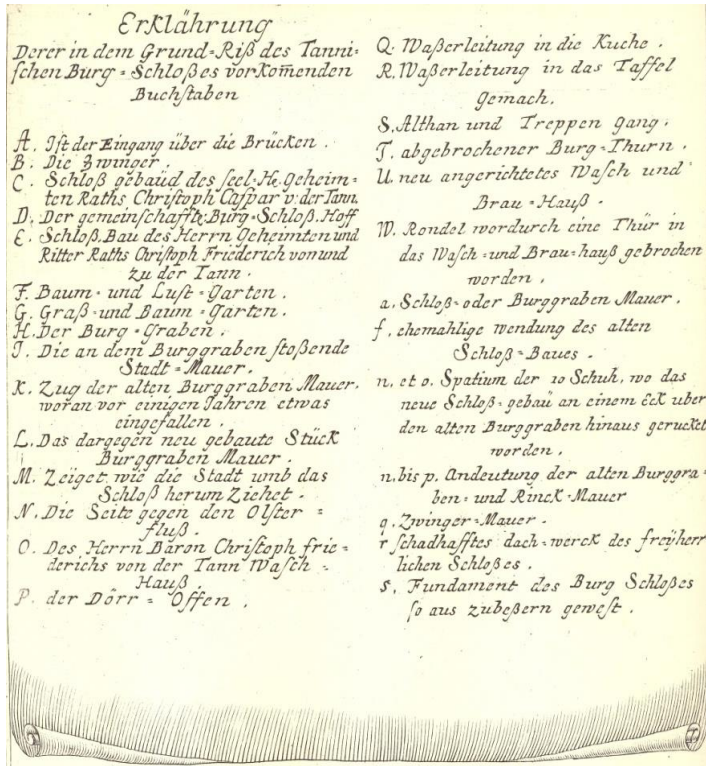 Erklährung
Derer in dem Grund=Riß des Tanni=
schen Burg=Schloßes vorkom̅enden
Buchstaben
A. Ist der Eingang über die Brücken.
B. Die Zwinger.
C. Schloß gebäud des seel: H. Geheim=
ten Raths Christoph Caspar v: der Tann.
D. Der gemeinschaffte: Burg=Schloß. Hoff
E. Schloß. Bau des Herrn Geheimten und
Ritter Raths Christoph Friederich von und
zu der Tann.
F. Baum= und Lust=Garten.
G. Graß= und Baum=Garten.
H. Der Burg=Graben.
J. Die an dem Burggraben stoßende
Stadt=Mauer.
K. Zug der alten Burggraben Mauer.
woran vor einigen Jahren etwas
eingefallen.
L. Das dargegen neu gebaute Stück
Burggraben Mauer.
M. Zeiget wie die Stadt umb das
Schloß herum Ziehet.
N. Die Seite gegen den Olster=
fluß.
O. Des Herrn Baron Christoph frie=
derichs von der Tann Wasch=
Hauß.
P. der Dörr=Offen.
Q. Waßerleitung in die Kuche.
R. Waßerleitung in das Taffel
Gemach.
S. Althan und Treppen gang.
T. abgebrochener Burg=Thurn.
U. neu angerichtetes Wasch und
Brau=Hauß.
W. Rondel wordurch eine Thür in
das Wasch=und Brau=hauß gebrochen
worden.
a. Schloß=oder Burggraben Mauer.
f. ehemahlige wendung des alten
Schloß=Baues.
n. et o. Spatium der 10 Schuh, wo das
neue Schloß=gebaü an einem Eck uber
den alten Burggraben hinaus gerucket
worden.
n. bis p. Andeutung der alten Burggra=
ben= und Rinck=Mauer
q. Zwinger=Mauer.
r schadhafftes dach=werck des freÿherr
lichen Schloßes.
s. Fundament des Burg Schloßes
so aus zubeßern gewest.